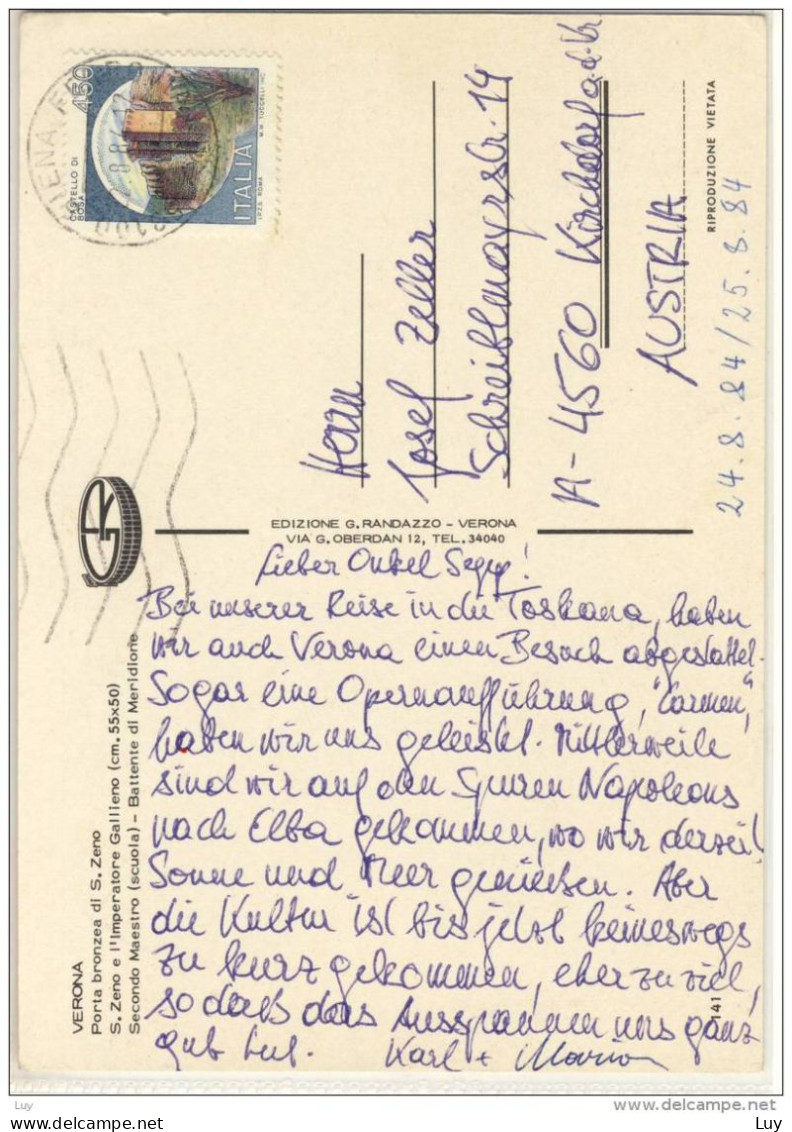 VERONA
Porta bronzea di S. Zeno
S. Zeno e l'Imperatore Gallieno (cm. 55x50)
Secondo Maestro (scuola) - Battente di Meridione
EDIZIONE G. RANDAZZO - VERONA
VIA G. OBERDAN 12, TEL. 34040
Lieber Onkel Sepp!
Bei unserer Reise in die Toskana, haben
wir auch Verona einen Besuch abgestattet.
Sogar eine Opernaufführung, "Carmen",
haben wir uns geleistet. Mittlerweile
sind wir auf den Spuren Napoleons
nach Elba gekommen, wo wir derzeit
Sonne und Meer genießen. Aber
die Kultur ist bis jetzt keineswegs
zu kurz gekommen, eher zu viel,
so daß das Ausspannen uns ganz
gut tut. Karl + Marion
141
450
CASTELLO DI
BOSA
ITALIA
I.P.Z.S. ROMA
M.M. TUCCELLI INC.
Herrn
Josef Zeller
Schreiblmayrstr. 14
A-4560 Kirchdorf a.d. Kr.
AUSTRIA
RIPRODUZIONE VIETATA
24.8.84/25.8.84
Luy
delcampe.net
Luy